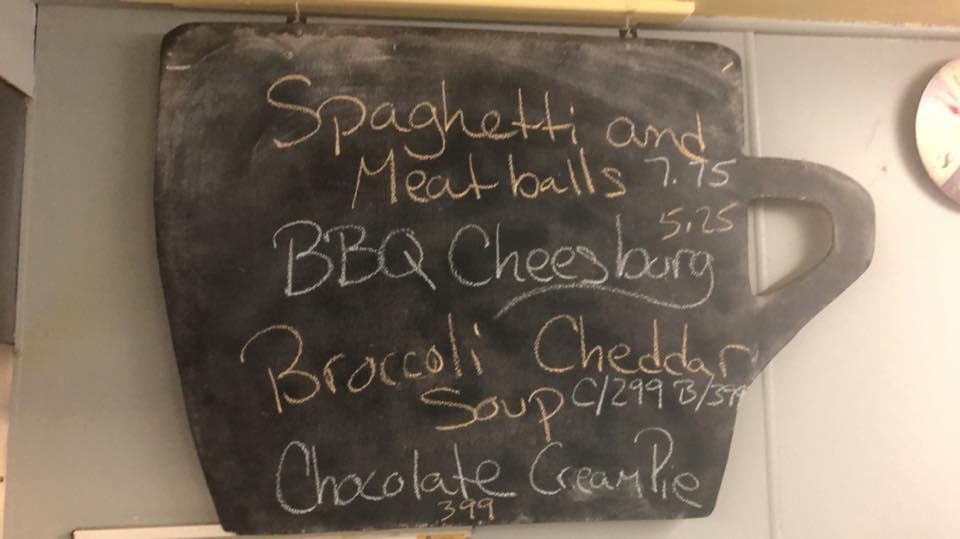 Spaghetti and
Meatballs 7.75
5.25
BBQ Cheesburg
Broccoli Cheddar
Soup C/299 B/399
Chocolate Cream Pie
399